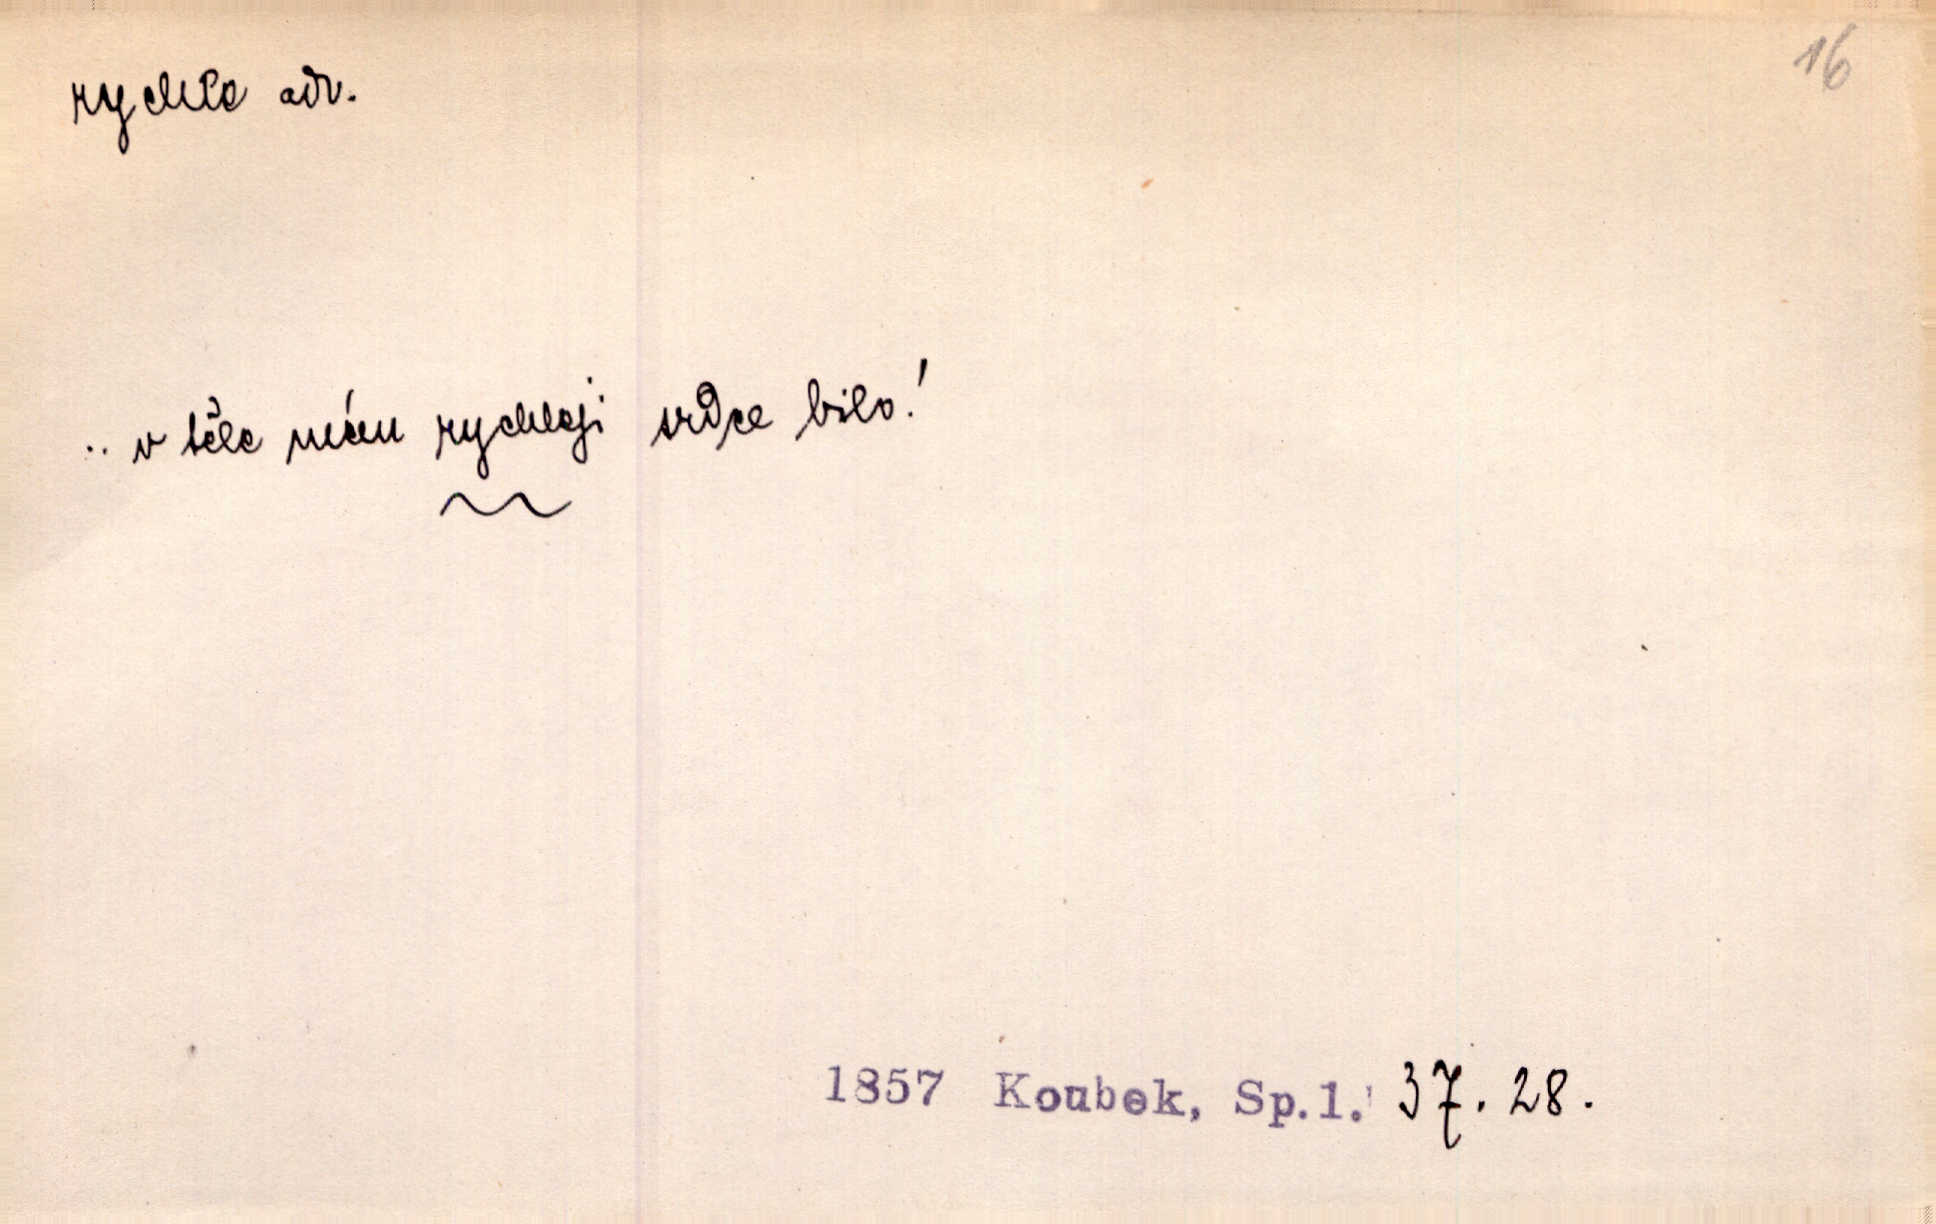 rychle adv.
16
.. v těle mém rychleji srdce bilo!
1857 Koubek, Sp.1. 37. 28.